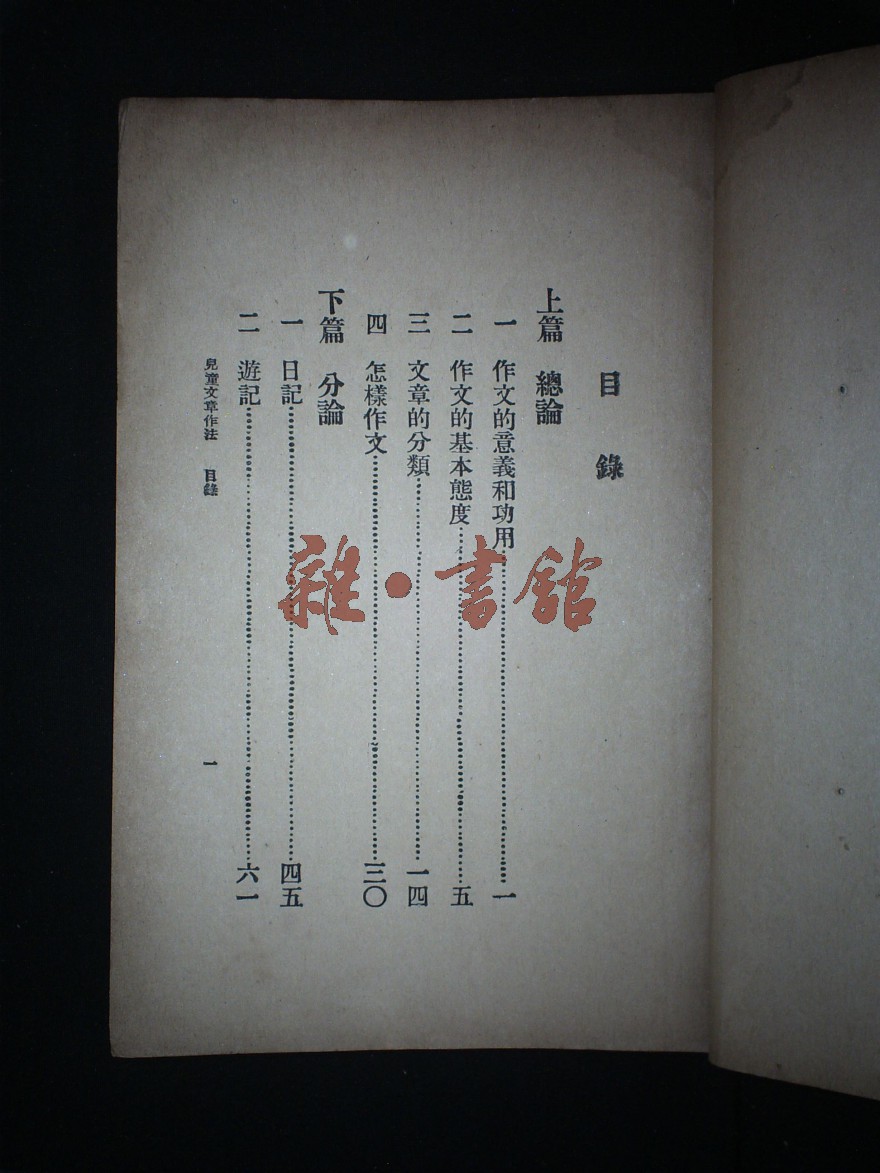 目錄
上篇 總論
一 作文的意義和功用……一
二 作文的基本態度……五
三 文章的分類……一四
四 怎樣作文……三〇
下篇 分論
一 日記……四五
二 遊記……六一
兒童文章作法 目錄 一
雜·書館